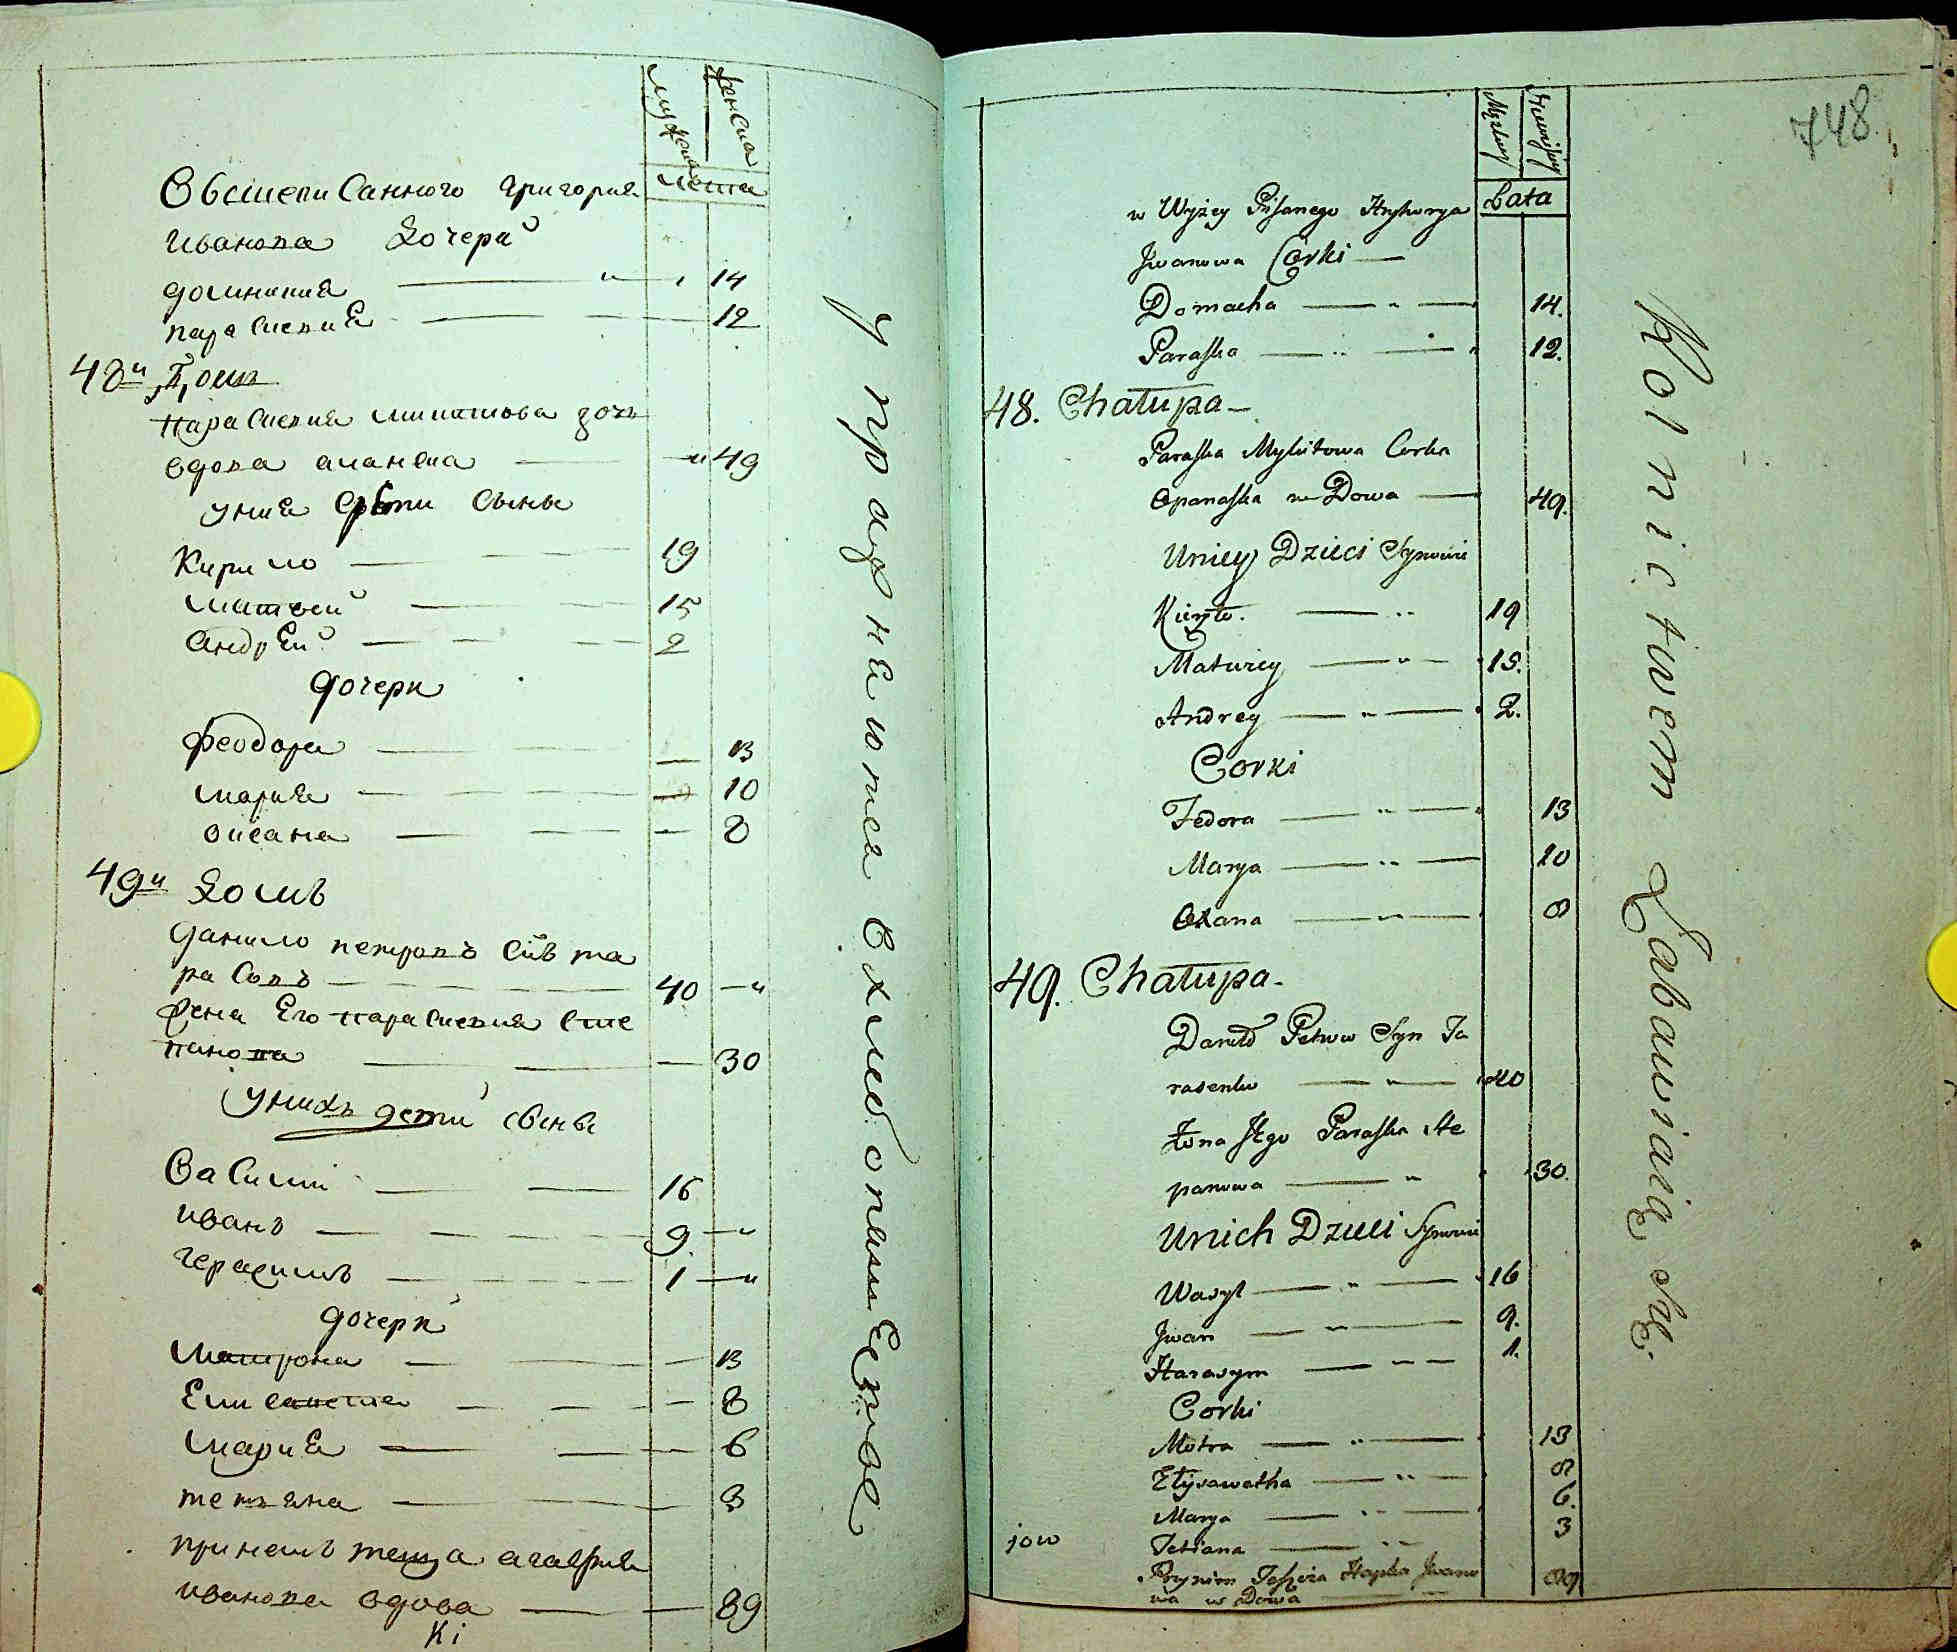 мужеска женска
лета
Вышеписанного Григория
Иванова дочери
Домникия 14
Параскевия 12
48й Дом
Параскевия Микитова дочь
вдова Апанаса 49
у ния дети сыны
Кирило 19
Матвей 15
Андрей 2
дочери
Феодора 13
Мария 10
Оксана 8
49й Домъ
Данило Петровъ снъ Та
расовъ 40
Жена Его Параскевия Сте
панова 30
у нихъ дети сыны
Васили 16
Иванъ 9
Герасимъ 1
дочери
Матрона 13
Елисавета 8
Мария 6
Тетяна 3
при немъ теща Агафия
Иванова вдова 89
Кі
упражняются в хлебопашестве
748
Męzkiey Żenskiey
Lata
w Wyżey Pisanego Hryhorya
Jwanowa Corki
Domacha 14.
Paraska 12.
48. Chałupa
Paraska Mykitowa Corka
Opanaska w Dowa 49.
Uniey Dzieci Synowie
Kiryło. 19
Matwiey 15.
Andrey 2.
Corki
Fedora 13
Marya 10
Oxana 8
49. Chałupa
Daniło Petrow Syn Ta
rasenko 40
Żona Jego Paraska Ste
panowa 30.
Unich Dzieci Synowie
Wasyl 16
Jwan 9.
Harasym 1.
Corki
Motra 13
Ełysawetha 8
Marya 6.
jow Tetiana 3
Przyniem Teszcza Hapka Jwano
wa w Dowa 89
Rolnictwem Zabawiaią się.